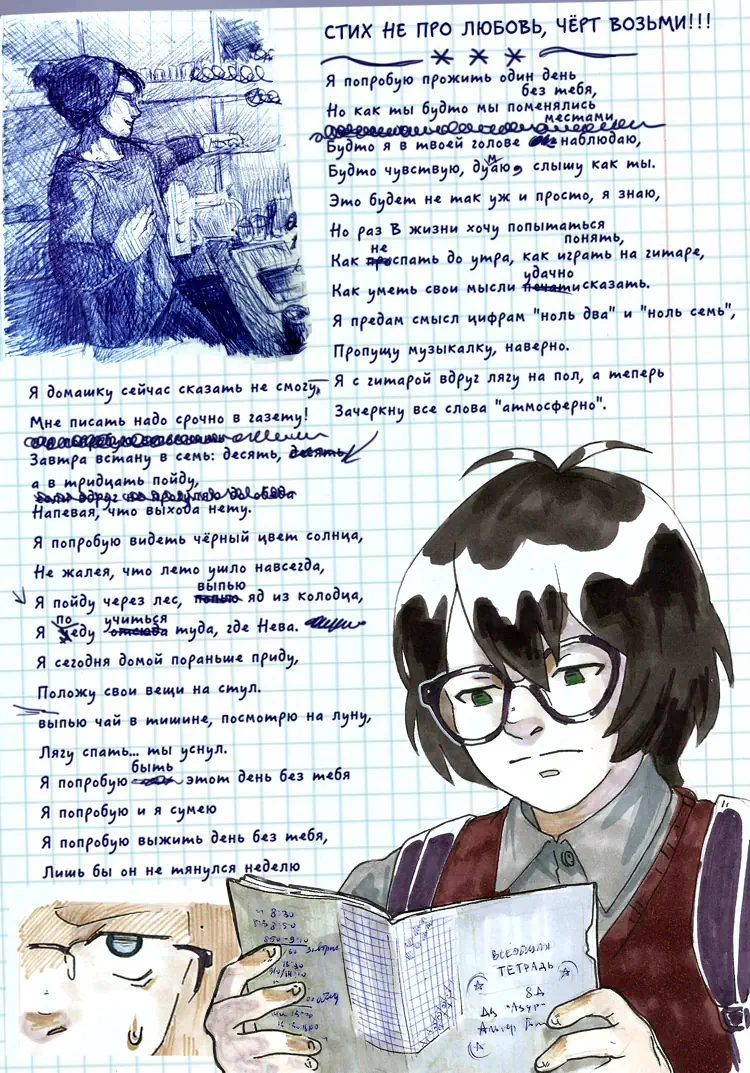 СТИХ НЕ ПРО ЛЮБОВЬ, ЧЁРТ ВОЗЬМИ!!!
Я попробую прожить один день
без тебя,
Но как ты будто мы поменялись
местами,
Будто я в твоей голове наблюдаю,
Будто чувствую, думаю, слышу как ты.
Это будет не так уж и просто, я знаю,
Но раз В жизни хочу попытаться
понять,
Как не спать до утра, как играть на гитаре,
Как уметь свои мысли удачно сказать.
Я предам смысл цифрам "ноль два" и "ноль семь",
Пропущу музыкалку, наверно.
Я с гитарой вдруг лягу на пол, а теперь
Зачеркну все слова "атмосферно".
Я домашку сейчас сказать не смогу,
Мне писать надо срочно в газету!
Завтра встану в семь: десять,
а в тридцать пойду,
Напевая, что выхода нету.
Я попробую видеть чёрный цвет солнца,
Не жалея, что лето ушло навсегда,
Я пойду через лес, выпью яд из колодца,
Я поеду учиться туда, где Нева.
Я сегодня домой пораньше приду,
Положу свои вещи на стул.
выпью чай в тишине, посмотрю на луну,
Лягу спать... ты уснул.
Я попробую быть этот день без тебя
Я попробую и я сумею
Я попробую выжить день без тебя,
Лишь бы он не тянулся неделю
8:30
8:50
ТЕТРАДЬ
8Д